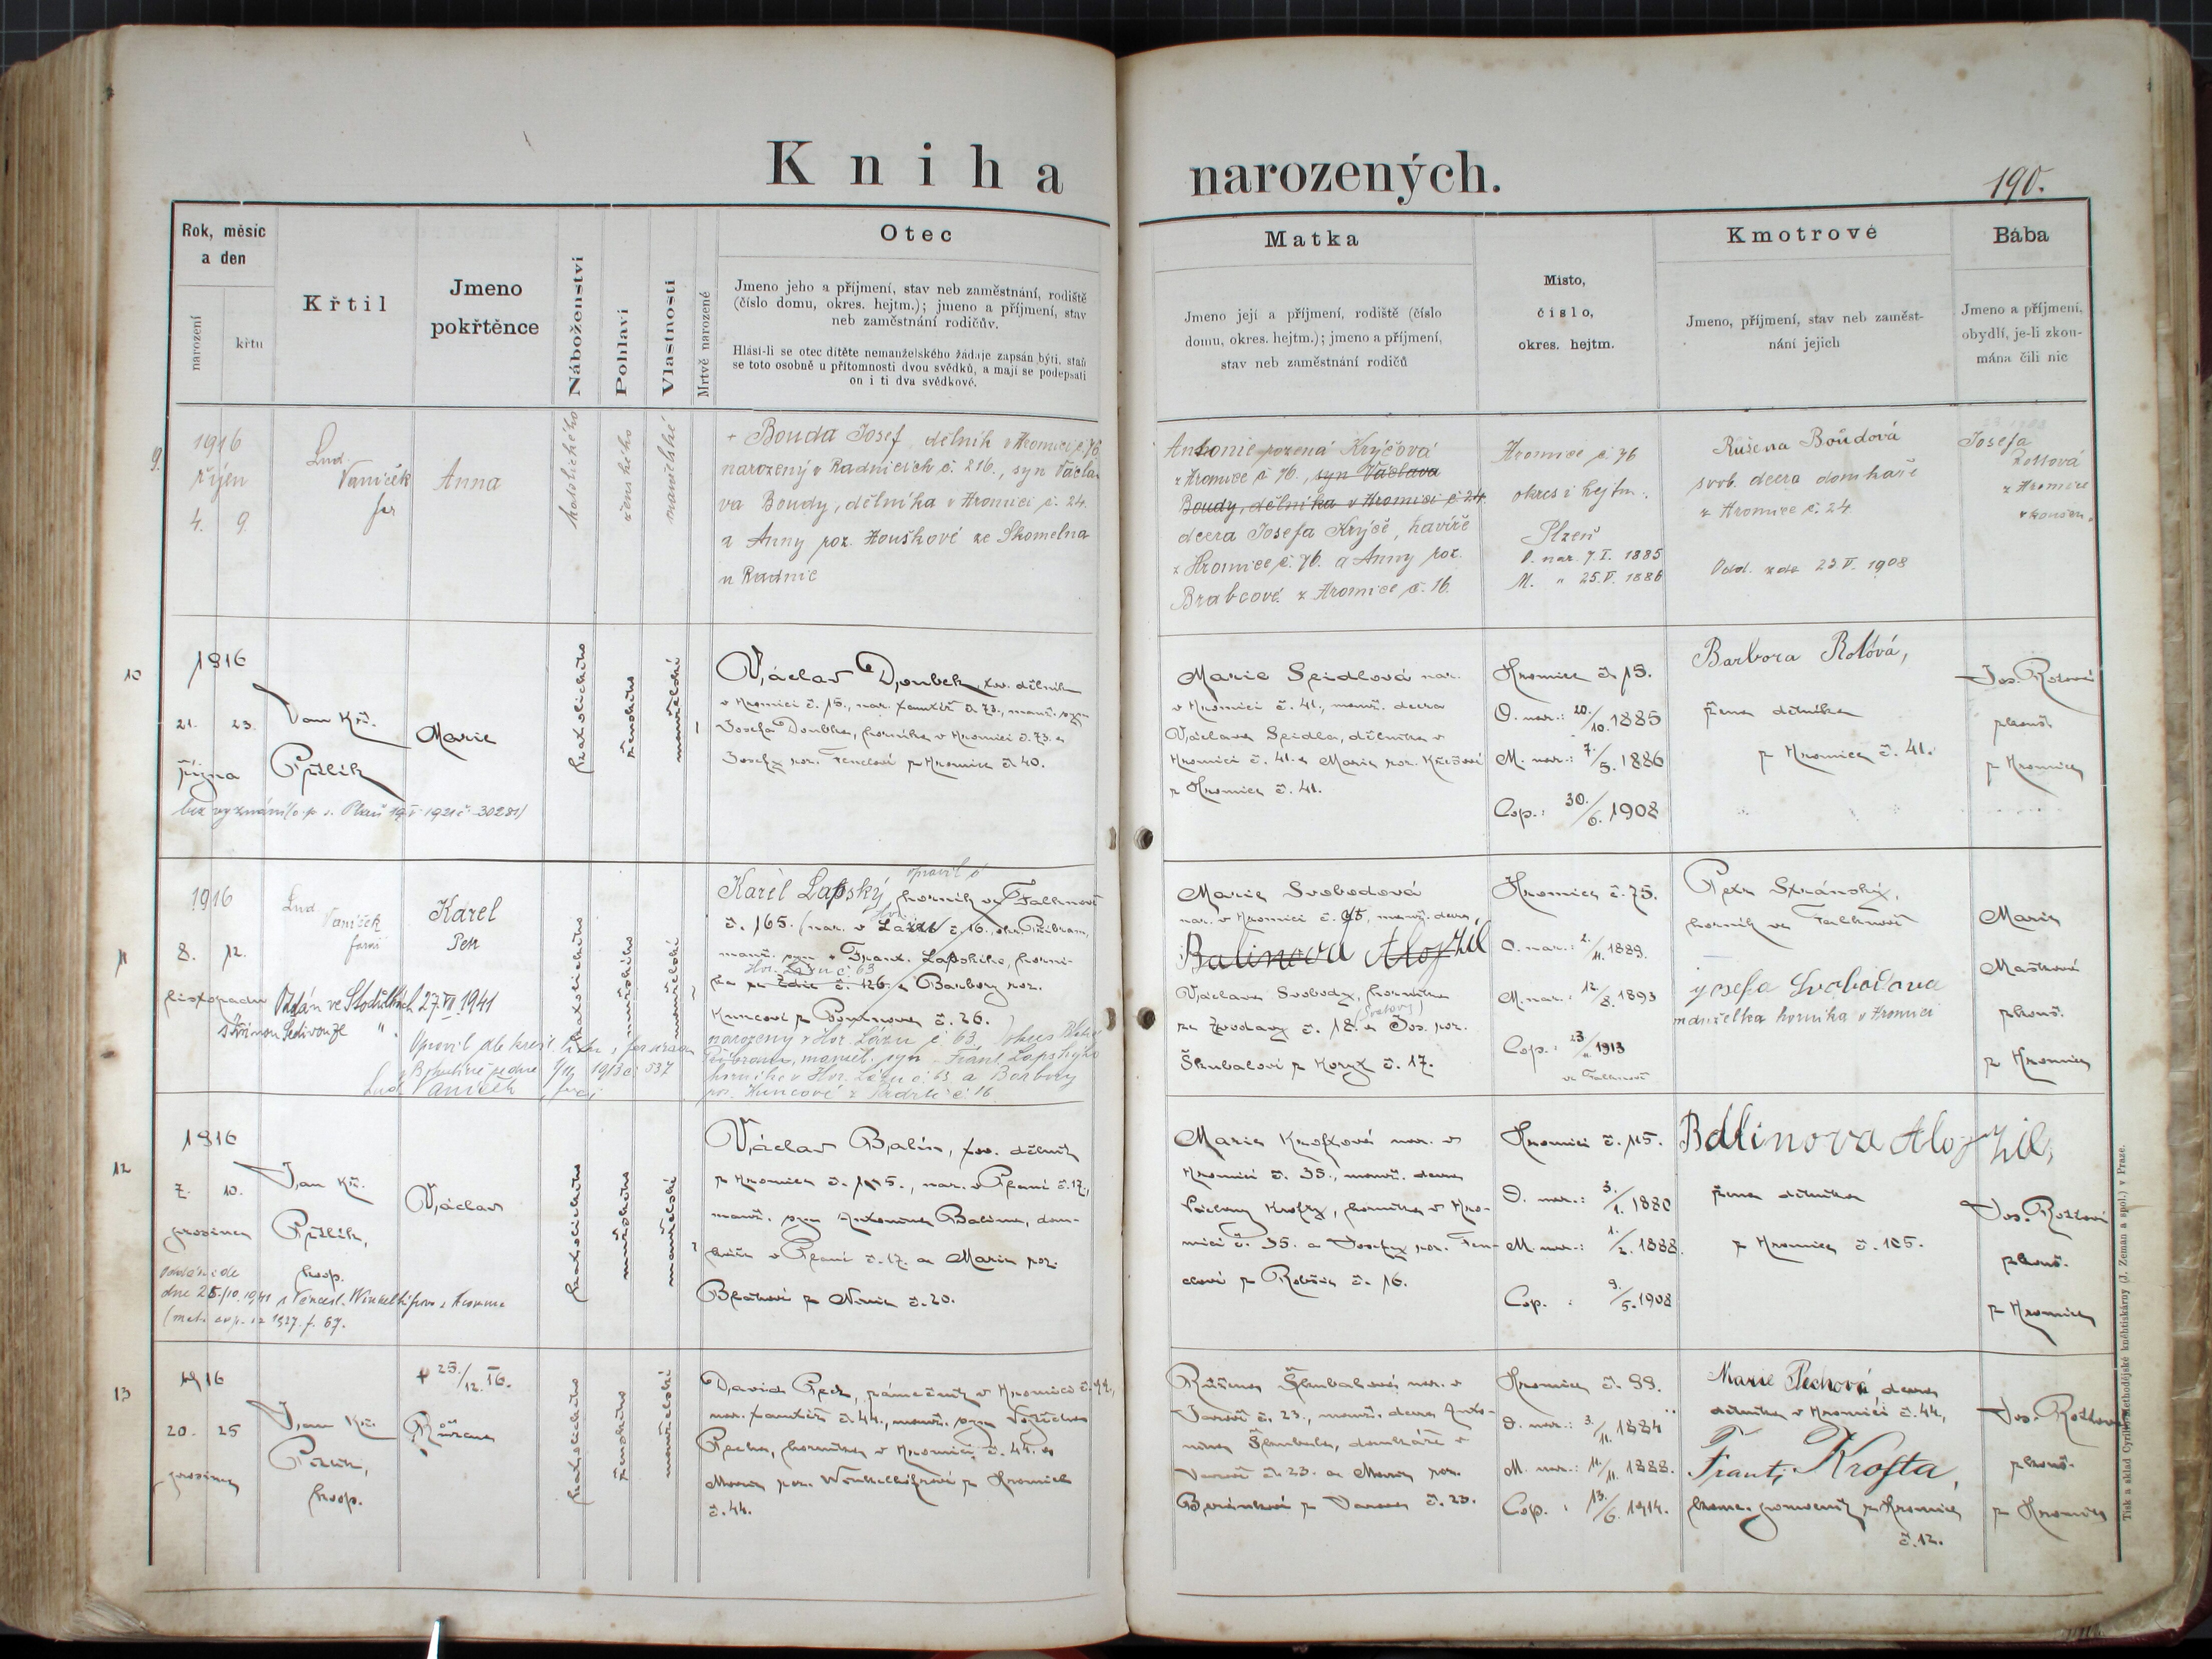 Kniha narozených.
190.
Rok, měsíc
a den
narození
křtu
Křtil
Jmeno
pokřtěnce
Náboženství
Pohlaví
Vlastnosti
Mrtvě narozené
Otec
Jmeno jeho a příjmení, stav neb zaměstnání, rodiště
(číslo domu, okres. hejtm.); jmeno a příjmení, stav
neb zaměstnání rodičův.
Hlásí-li se otec dítěte nemanželského žádaje zapsán býti, staň
se toto osobně u přítomnosti dvou svědků, a mají se podepsati
on i ti dva svědkové.
Matka
Jmeno její a příjmení, rodiště (číslo
domu, okres. hejtm.); jmeno a příjmení,
stav neb zaměstnání rodičů
Místo,
číslo,
okres. hejtm.
Kmotrové
Jmeno, příjmení, stav neb zaměst-
nání jejich
Bába
Jmeno a příjmení,
obydlí, je-li zkou-
mána čili nic
9.
1916
říjen
4. 9.
Lud.
Vaníček
far
Anna
katolického
ženského
manželské
Bouda Josef dělník v Hromici č. 76
narozený v Radnicích č. 216., syn Václa-
va Boudy, dělníka v Hromici č. 24.
a Anny roz. Houškové ze Skomelna
u Radnic
Antonie rozená Krýčová
z Hromice č. 76., syn Václava
Boudy, dělníka v Hromici č. 24.
dcera Josefa Krýče, havíře
z Hromice č. 76. a Anny roz.
Brabcové z Hromice č. 16.
Hromice č. 76
okres. hejtm.
Plzeň
O. nar. 7. I. 1885
M. " 25. V. 1886
Růžena Boudová
svob. dcera domkáře
z Hromice č. 24.
Odd. zde 23 V. 1908
Josefa
z Hromice
zkouš.
10
1916
21. 23.
října
Jan Kř.
Pytlík
Marie
katolického
ženského
manželské
Václav Doubek, tov. dělník
v Hromici č. 15., nar. tamtéž č. 73., manž. syn
Josefa Doubka, horníka v Hromici č. 73. a
Josefy roz. Fenclové z Hromice č. 40.
Marie Seidlová nar.
v Hromici č. 41., manž. dcera
Václava Seidla, dělníka v
Hromici č. 41. a Marie roz.
z Hromice č. 41.
Hromice č. 15.
O. nar.: 20./10. 1885
M. nar.: 7./5. 1886
Cop.: 30./6. 1908
Barbora Rotová,
žena dělníka
z Hromice č. 41.
Jos.
zkouš.
z Hromice
bez vyznání
11
1916
8. 12.
listopadu
Lud.
Vaníček
farář
Karel
Petr
katolického
mužského
manželské
opravil
Karel Lapský, horník ve Falknově
č. 165. (nar. v č. 16., okr. Příbram,
manž. syn Frant. Lapského, horní-
Hor. Lázu č. 63
ka ze Zdic č. 126. a Barbory roz.
Kuncové z č. 26.
narozený v Hor. Lázu č. 63, okres
Příbram, manžel. syn Frant. Lapského
horníka v Hor. Lázu č. 63 a Barbory
roz. Kuncové z č. 16
Oddán ve Stodůlkách 27. VII 1941
Opravil dle křest. listu
Lud. Vaníček, farář
Marie Svobodová
nar. v Hromici č. 75, manž. dcera,
Balinova Alojzil
Václava Svobody, horníka
ze Zvodavy č. 18. a Jos. roz.
Škubalové z Koryt č. 17.
Hromice č. 75.
O. nar.: 2./11. 1889.
M. nar.: 12/8. 1893
Cop.: 23/ 1913
ve Falknově
Petr Stránský,
horník ve Falknově
josefa Svobodova
manželka horníka v Hromici
Marie
Mašková
zkouš.
z Hromice
12
1916
7. 10.
prosince
Jan Kř.
Pytlík,
koop.
Václav
katolického
mužského
manželské
Václav Balín, tov. dělník
z Hromice č. 105., nar. v Plané č. 17.,
manž. syn Antonína Balína, dom-
káře v Plané č. 17. a Marie roz.
z Nynic č. 20.
Marie Kroftová nar. v
Hromici č. 35., manž. dcera
Václava Krofty, horníka v Hro-
mici č. 35. a Josefy roz. Fen-
clové z Robčic č. 16.
Hromici č. 115.
O. nar.: 3./1. 1880
M. nar.: 1./2. 1888.
Cop. : 9./5. 1908
Balinova Alojzil,
žena dělníka
z Hromice č. 105.
Jos.
zkouš.
z Hromice
13
1916
20. 25
prosince
Jan Kř.
Pytlík,
koop.
+ 25./12. 16.
Růžena
katolického
ženského
manželské
David Pech, zámečník v Hromici č. 99.,
nar. tamtéž č. 44., manž. syn Vojtěcha
Pecha, horníka v Hromici č. 44. a
Marie roz. Winkelhöfrové z Hromice
č. 44.
Růžena Škubalová nar. v
č. 23., manž. dcera Anto-
nína Škubala, domkáře v
č. 23. a Marie roz.
Beránkové z č. 23.
Hromice č. 99.
O. nar.: 3./11. 1884
M. nar.: 11./11. 1888.
Cop. : 13./6. 1914.
Marie Pechová, dcera
dělníka v Hromici č. 44,
Frant. Krofta,
z Hromice
č. 12.
Jos.
zkouš.
z Hromice
Tisk a sklad Cyrillo-Methodějské knihtiskárny (J. Zeman a spol.) v Praze.